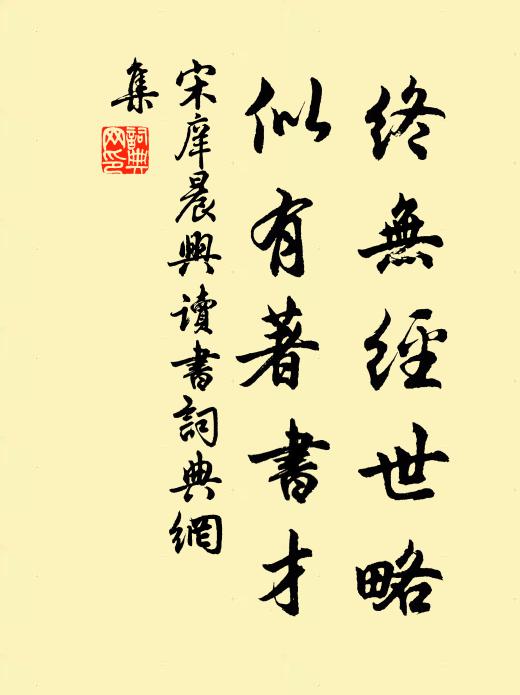 終無經世略
似有著書才
宋庠晨興讀書詞典網
集
詞典网印